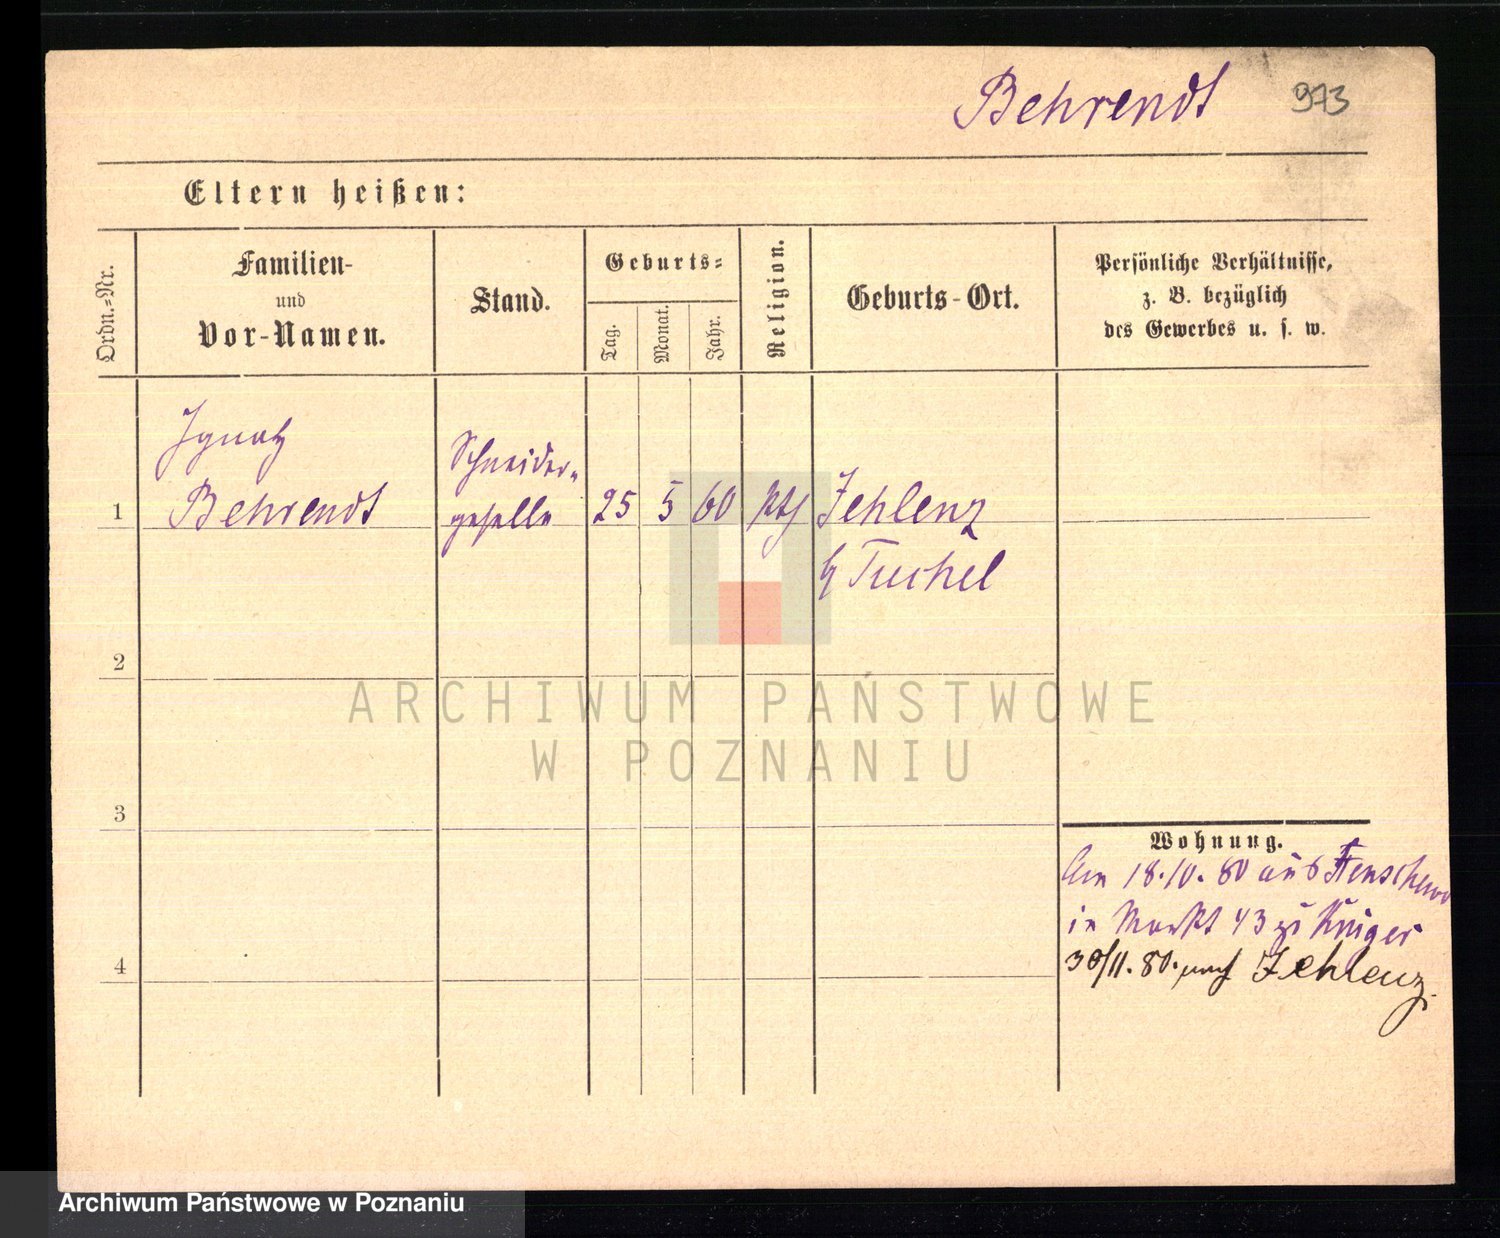 Behrendt
973
Eltern heißen:
Ordn.-Nr.
Familien-
und
Vor-Namen.
Stand.
Geburts-
Tag.
Monat.
Jahr.
Religion.
Geburts-Ort.
Persönliche Verhältnisse,
z. B. bezüglich
des Gewerbes u. s. w.
1
Ignatz
Behrendt
Schneider-
geselle
25
5
60
kth
Zehlenz
b/ Tuchel
2
3
4
ARCHIWUM PAŃSTWOWE
W POZNANIU
Wohnung.
Am 18.10.80 aus
in Markt 43 zu Krüger
30/11.80. nach Zehlenz.
Archiwum Państwowe w Poznaniu